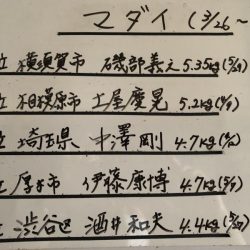 マダイ (3/26~
位 横須賀市 磯部義之 5.35kg(5/29)
位 相模原市 土屋慶晃 5.2kg(
位 埼玉県 中澤剛 4.7kg(
位 厚木市 伊藤康博 4.7kg(5/9)
位 渋谷区 酒井和夫 4.4kg(